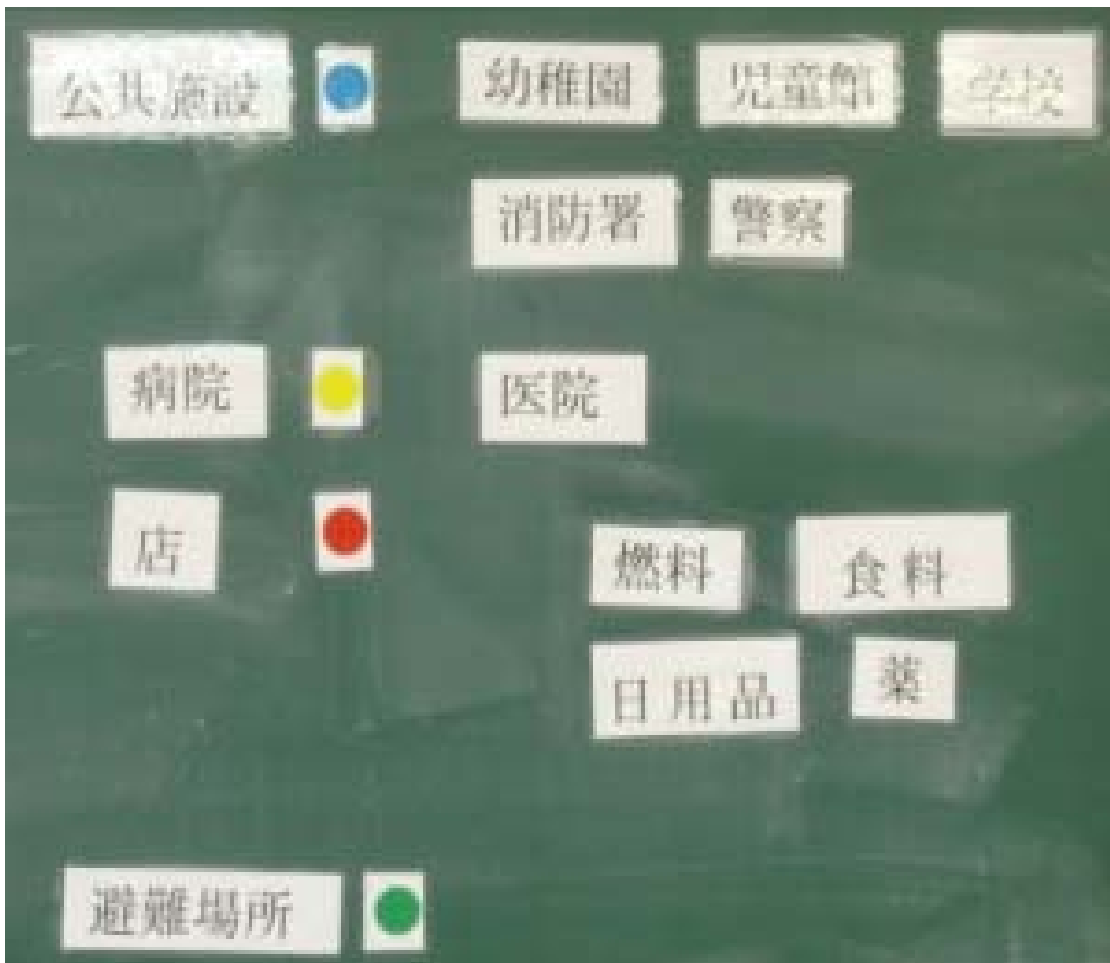 公共施設 幼稚園 児童館 学校
消防署 警察
病院 医院
店 燃料 食料
日用品 薬
避難場所